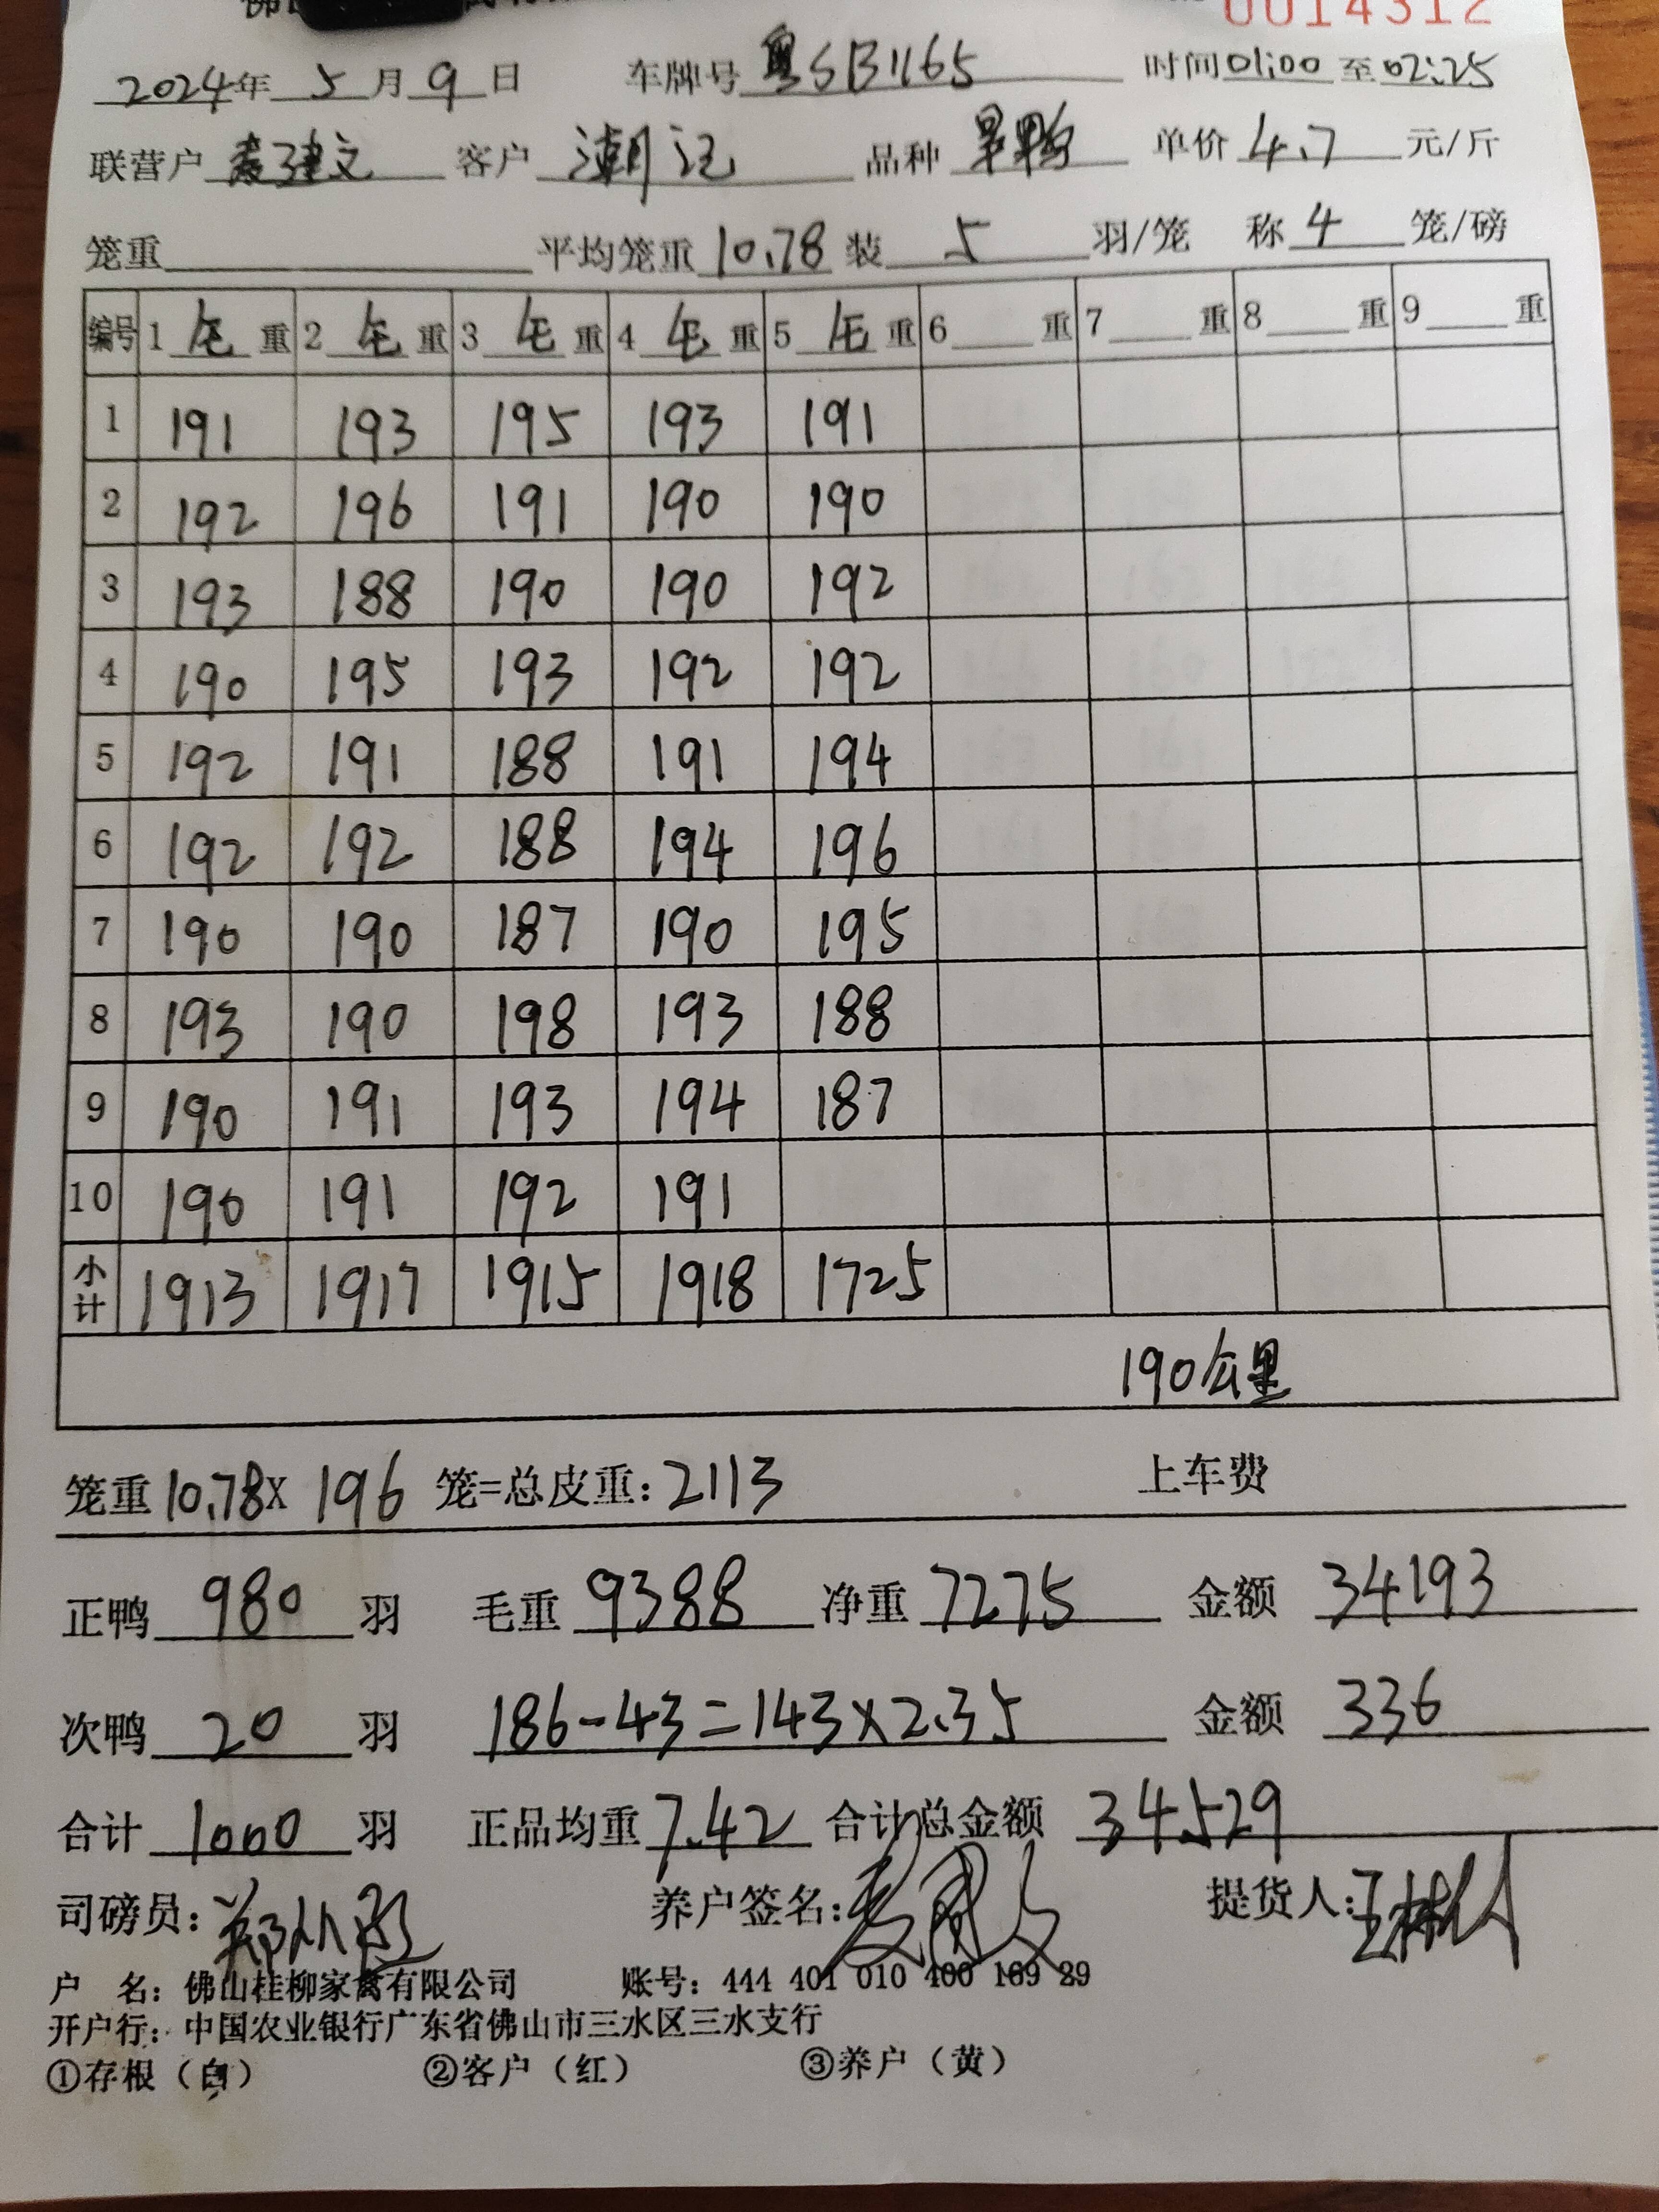 佛山
0014312
2024年 5 月 9 日 车牌号 粤SB1165 时间 01:00 至 02:25
联营户 麦建文 客户 潮记 品种 旱鸭 单价 4.7 元/斤
笼重 平均笼重 10.78 装 5 羽/笼 称 4 笼/磅
编号 1 毛 重 2 毛 重 3 毛 重 4 毛 重 5 毛 重 6 重 7 重 8 重 9 重
1 191 193 195 193 191
2 192 196 191 190 190
3 193 188 190 190 192
4 190 195 193 192 192
5 192 191 188 191 194
6 192 192 188 194 196
7 190 190 187 190 195
8 193 190 198 193 188
9 190 191 193 194 187
10 190 191 192 191
小计 1913 1917 1915 1918 1725
190公里
笼重 10.78 X 196 笼=总皮重: 2113 上车费
正鸭 980 羽 毛重 9388 净重 7275 金额 34193
次鸭 20 羽 186-43=143×2.35 金额 336
合计 1000 羽 正品均重 7.42 合计总金额 34529
司磅员: 养户签名: 提货人:
户 名: 佛山桂柳家禽有限公司 账号: 444 401 010 400 169 29
开户行: 中国农业银行广东省佛山市三水区三水支行
①存根(白) ②客户(红) ③养户(黄)